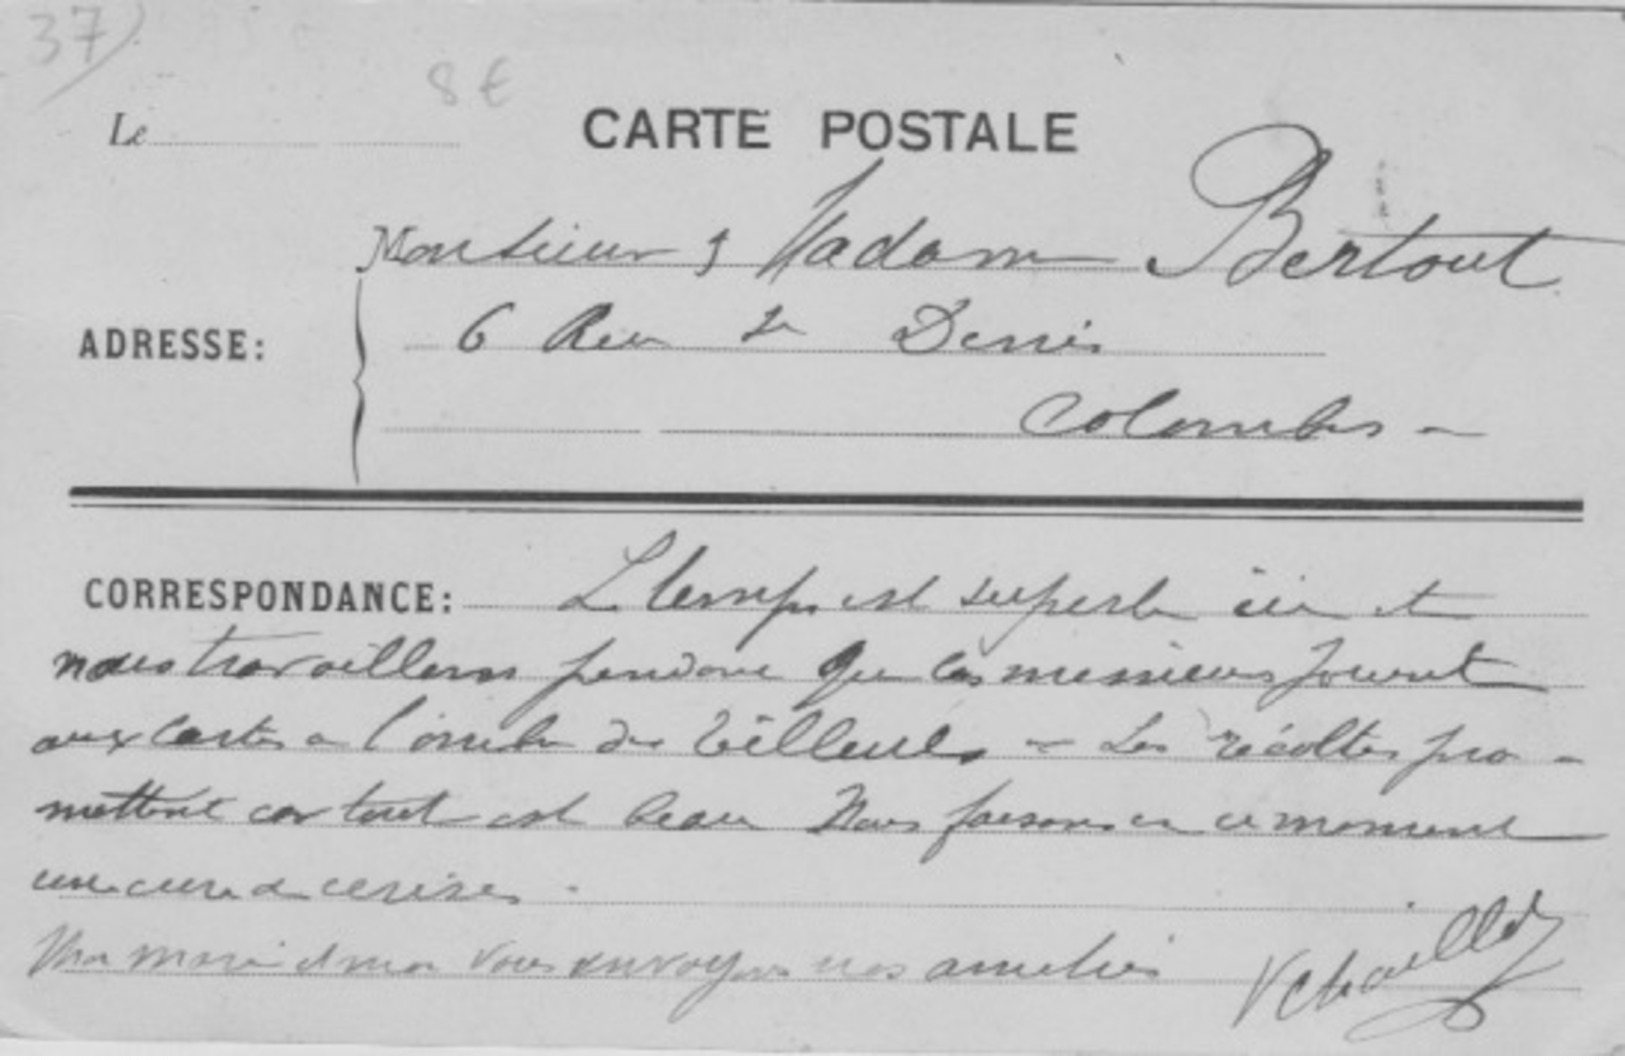 37)
8 €
Le
CARTE POSTALE
Monsieur & Madame Bertout
ADRESSE:
6 Rue St Denis
Colombes -
CORRESPONDANCE: Le temps est superbe ici et
nous travaillons pendant que les messieurs jouent
aux cartes a l'ombre des tilleuls - Les récoltes pro -
mettent car tout est beau Nous faisons en ce moment
une cure de cerises .
Mon mari et moi vous envoyons nos amitiés